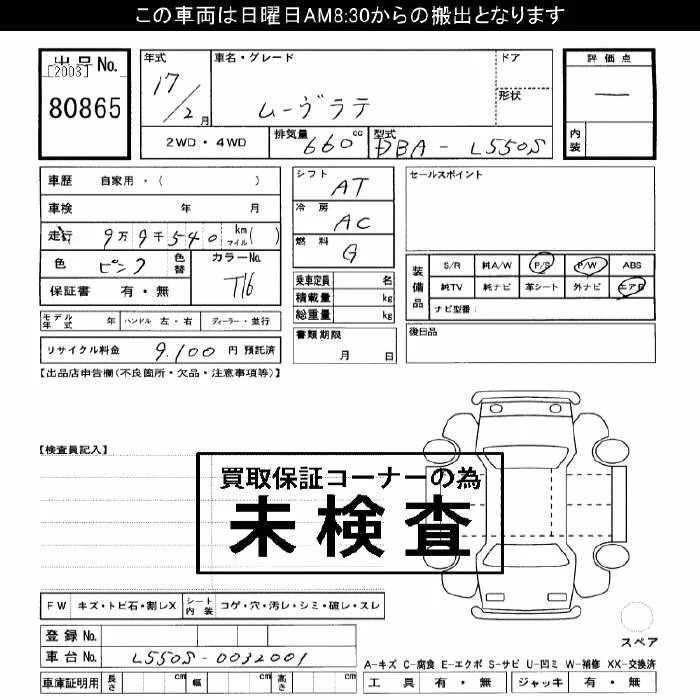 この車両は日曜日AM8:30からの搬出となります
出品No.
[2003]
80865
年式 17/2月
車名・グレード
ムーヴラテ
ドア
形状
評価点
―
内装
2WD・4WD
排気量 660cc
型式 DBA-L550S
車歴 自家用・( )
車検 年 月
走行 9万9千540 km マイル( )
色 ピンク 色替
カラーNo. T16
保証書 有・無
シフト AT
冷房 AC
燃料 G
乗車定員 名
積載量 kg
総重量 kg
書類期限
月 日
セールスポイント
装備品
S/R 純A/W P/S P/W ABS
純TV 純ナビ 革シート 外ナビ エアB
ナビ型番:
後日品
モデル年式 年 ハンドル 左・右 ディーラー・並行
リサイクル料金 9,100 円 預託済
【出品店申告欄(不良箇所・欠品・注意事項等)】
【検査員記入】
買取保証コーナーの為
未検査
FW キズ・トビ石・割レX シート内装 コゲ・穴・汚レ・シミ・破レ・スレ
スペア
登録No.
車台No. L550S-0032001
車庫証明用 長さ cm 幅 cm 高さ cm
A-キズ C-腐食 E-エクボ S-サビ U-凹ミ W-補修 XX-交換済
工具 有・無 ジャッキ 有・無